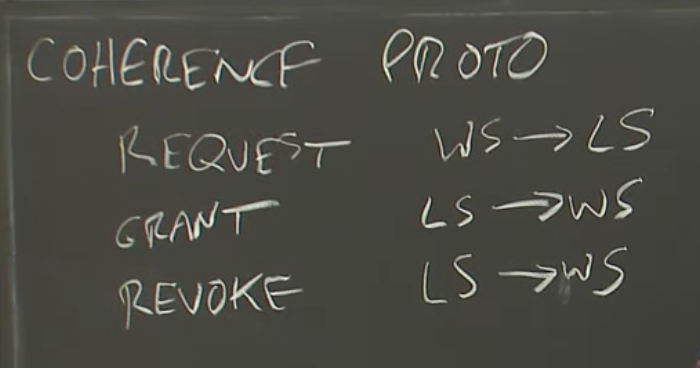 COHERENCE PROTO
REQUEST WS → LS
GRANT LS → WS
REVOKE LS → WS